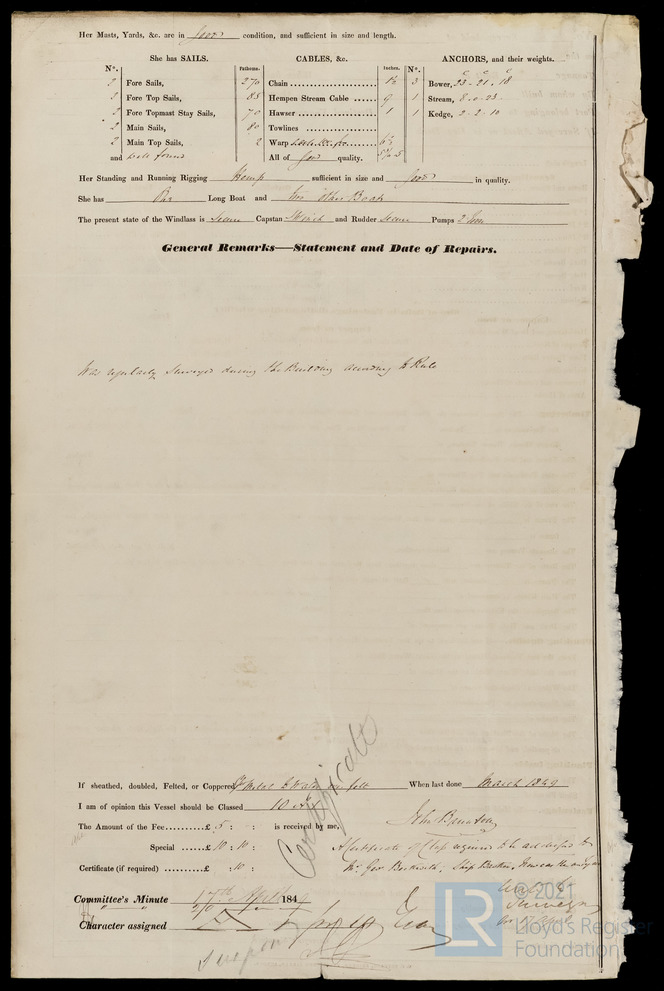 Her Masts, Yards, &c. are in good condition, and sufficient in size and length.
She has SAILS.
CABLES, &c.
ANCHORS, and their weights.
Nº. Fathoms. Inches. Nº.
3 Fore Sails, 270 Chain 1½ 3 Bower, 23 - 21 - 18
3 Fore Top Sails, 85 Hempen Stream Cable 9 1 Stream, 8-0-23
3 Fore Topmast Stay Sails, 70 Hawser 1 1 Kedge, 2-2-10
2 Main Sails, 80 Towlines
2 Main Top Sails, 2 Warp
and well found All of good quality.
Her Standing and Running Rigging Hemp sufficient in size and good in quality.
She has One Long Boat and two other Boats
The present state of the Windlass is Secure Capstan Winch and Rudder Secure Pumps 2 Iron
General Remarks—Statement and Date of Repairs.
Was regularly Surveyed during the Building according to Rule
If sheathed, doubled, Felted, or Coppered Y Metal felt When last done March 1849
I am of opinion this Vessel should be Classed 10 A1
John Brunton
The Amount of the Fee..........£ 5 : : is received by me,
Special ......£ 10 : 10 :
A Certificate of Class required to be addressed to
Mr. Geo
Certificate (if required) ......£ : 10 :
Certificate
Committee's Minute 17th April 184
Character assigned
© 2021
Lloyd's Register
Foundation
LR